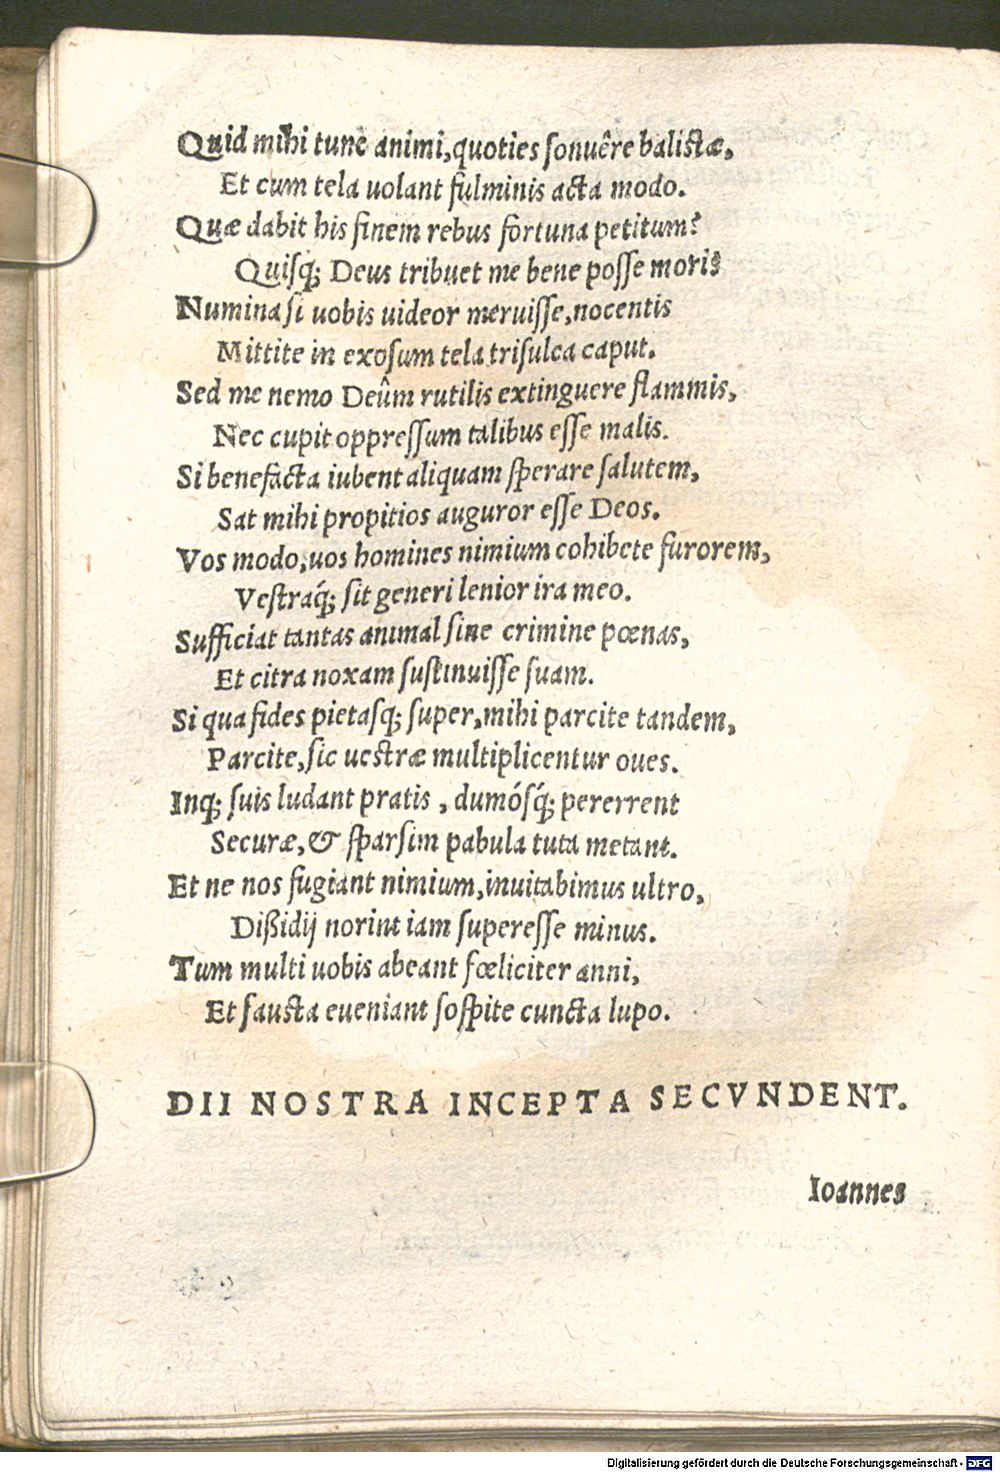 Quid mihi tunc animi, quoties sonuêre balistæ,
Et cum tela uolant fulminis acta modo.
Quæ dabit his finem rebus fortuna petitum?
Quisq; Deus tribuet me bene posse mori?
Numina si uobis uideor meruisse, nocentis
Mittite in exosum tela trisulca caput.
Sed me nemo Deûm rutilis extinguere flammis,
Nec cupit oppressum talibus esse malis.
Si benefacta iubent aliquam sperare salutem,
Sat mihi propitios auguror esse Deos.
Vos modo, uos homines nimium cohibete furorem,
Vestraq́; sit generi lenior ira meo.
Sufficiat tantas animal sine crimine pœnas,
Et citra noxam sustinuisse suam.
Si qua fides pietasq; super, mihi parcite tandem,
Parcite, sic uestræ multiplicentur oues.
Inq; suis ludant pratis, dumósq́; pererrent
Securæ, & sparsim pabula tuta metant.
Et ne nos fugiant nimium, inuitabimus ultro,
Dißidij norint iam superesse minus.
Tum multi uobis abeant fœliciter anni,
Et fausta eueniant sospite cuncta lupo.
DII NOSTRA INCEPTA SECVNDENT.
Ioannes
Digitalisierung gefördert durch die Deutsche Forschungsgemeinschaft - DFG